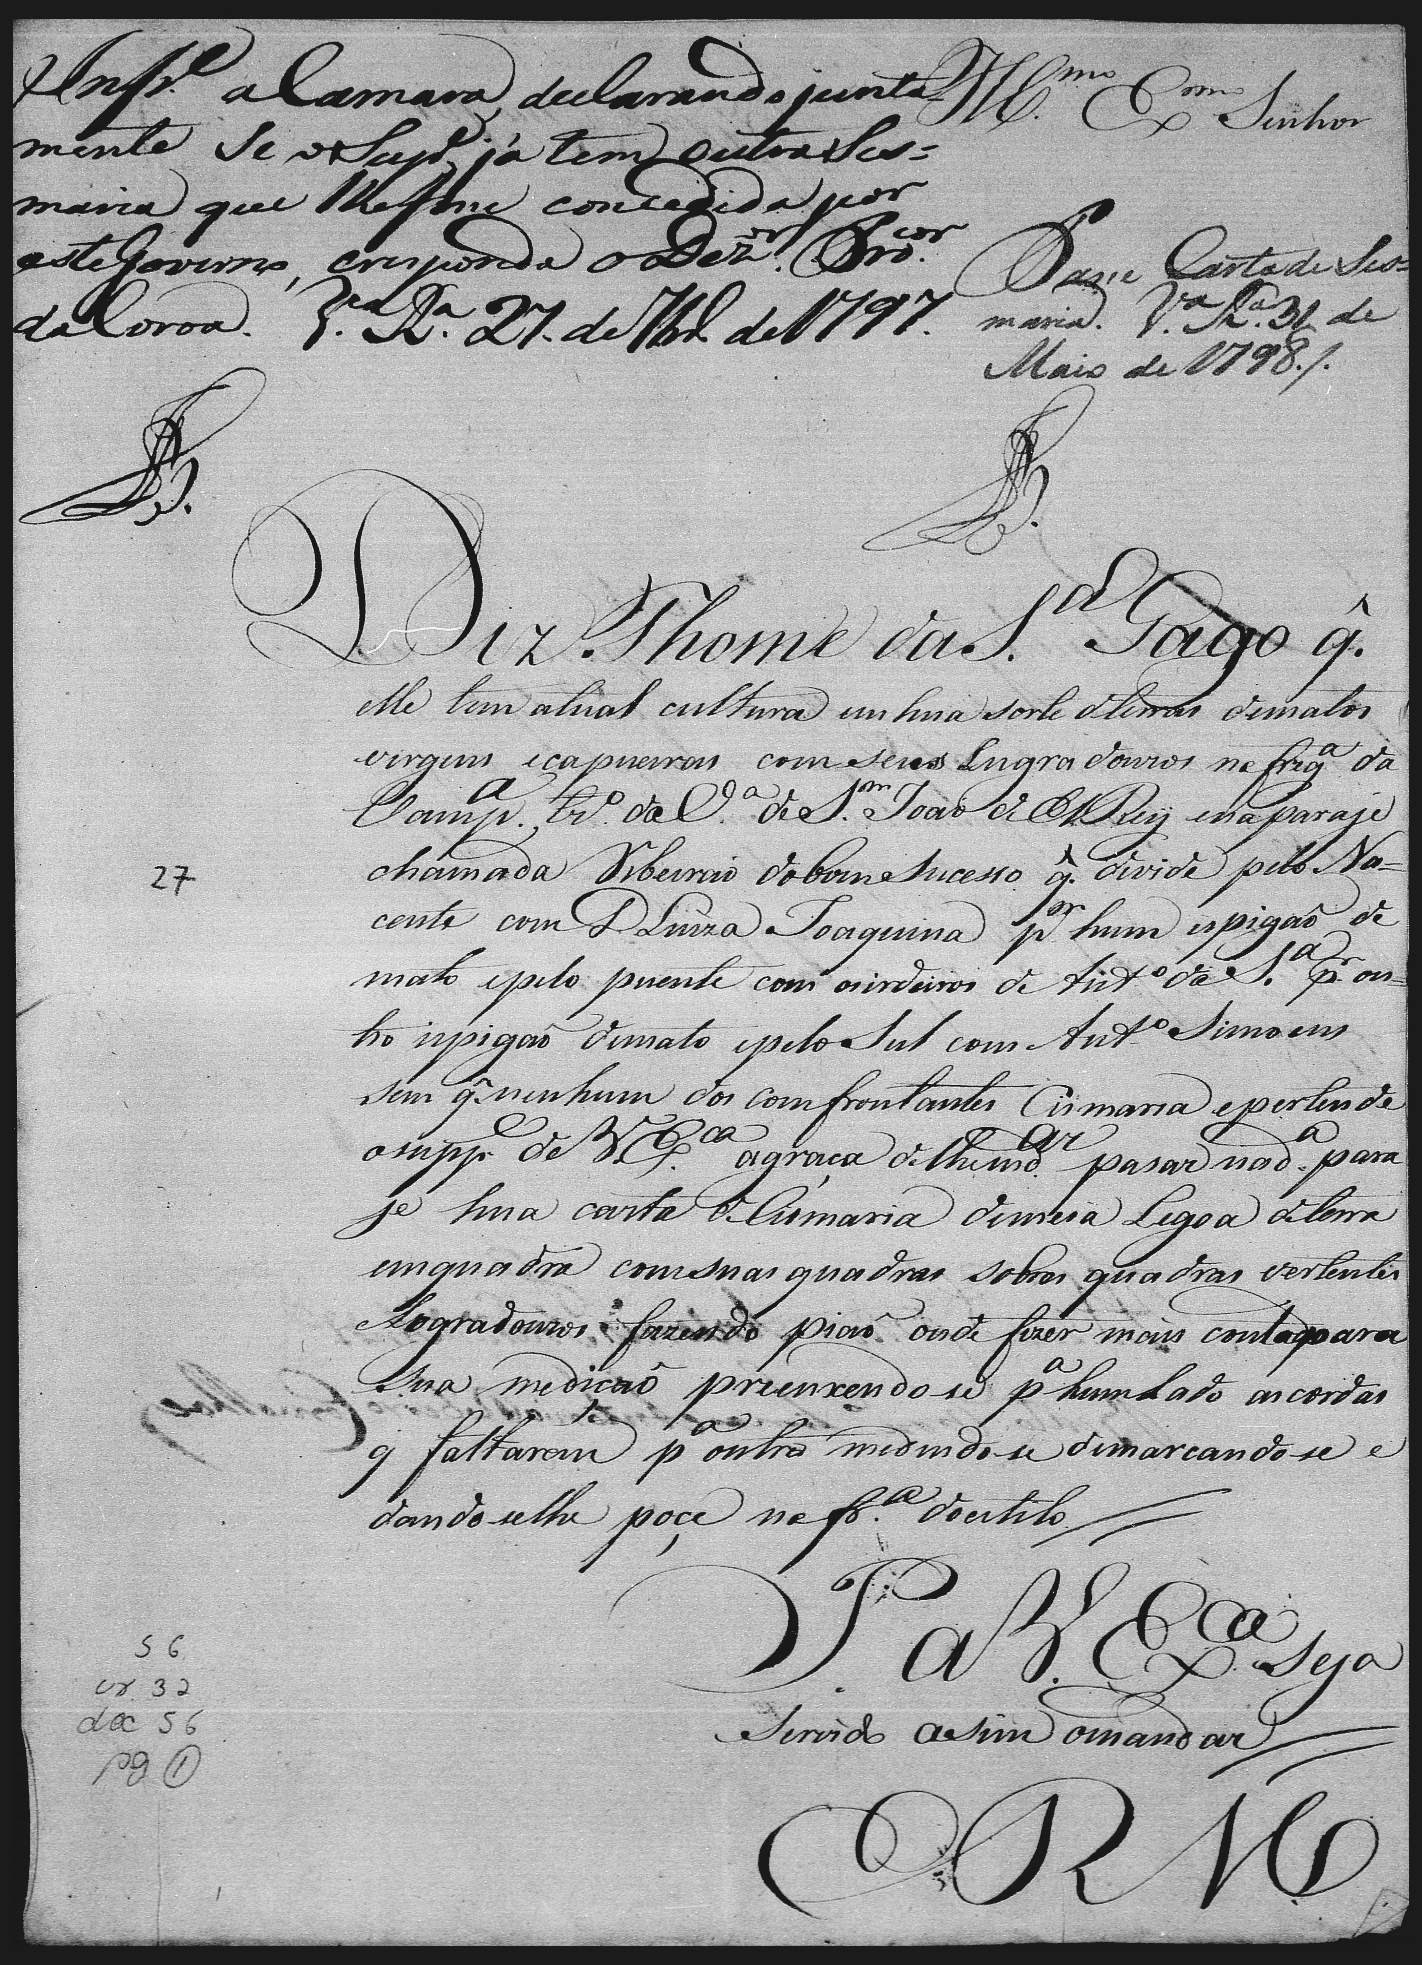 Infr.e a Camara, declarando junta
mente se o Sup.e já tem outra Ses=
maria que lhe fose concedida por
este Governo, e responda o Dez.or Pro.cor
da Coroa. V.a R.a 27. de 7br.o de 1797.
Ill.mo Ex.mo Senhor
Pase Carta de Ses=
maria. V.a R.a 31 de
Maio de 1798./.
Diz Thome da S.a Gago q.
elle tem atual cultura en hua sorte de terras de matos
virgens e capueiras com seus Lugradouros na freg.a da
Camp.a tr.o da V.a de S.m Joao de El Rey en a paraje
chamada Ribeirão do bom Sucesso q. divide pelo Na=
cente com D Luiza Joaquina p.r hum espigaõ de
mato e pelo puente com os irdeiros de Ant.o da S.a p.r ou=
tro ispigaõ de mato e pelo Sul com Ant.o Simoens
sem q. nenhum dos comfrontantes Cismaria e pertende
o supp.e de V. Ex.ca a graça de lhe md.ar pasar
se hua carta de Cismaria de meia Legoa de terra
en quadra com suas quadras sobras quadras vertentes
Logradouros fazendo piaõ onde fizer mais conta para
sua mediçaõ preenxendo se p.a hum Lado as cordas
q faltarem p.a outro medindo se dimarcando se e
dando selhe poçe na fr.a do estilo
P. a V. Ex.ca Seja
Servido asim o mandar
E R M
27
56
cx 32
doc 56
pg 1